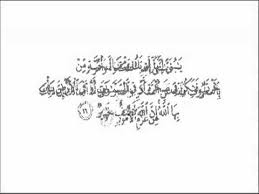 يبنى إنها إن تك مثقال حبة من
خردل فتكن فى صخرة أو فى السموت أو فى الأرض يأت
بها الله إن الله لطيف خبير ١٦